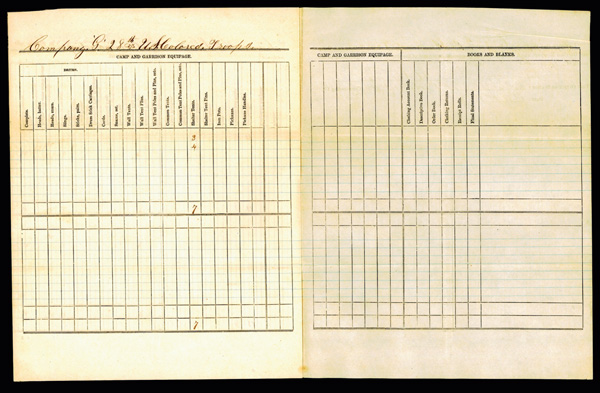 Company G. 28th U.S. Colored Troops.
CAMP AND GARRISON EQUIPAGE.
DRUMS.
Complete.
Heads, batter.
Heads, snare.
Slings.
Sticks, pairs.
Drum Stick Carriages.
Cords.
Snares, set.
Wall Tents.
Wall Tent Flies.
Wall Tent Poles and Pins, sets.
Common Tents.
Common Tent Poles and Pins, sets.
Shelter Tents.
Shelter Tent Flies.
Iron Pots.
Pickaxes.
Pickaxe Handles.
3
4
7
7
CAMP AND GARRISON EQUIPAGE.
BOOKS AND BLANKS.
Clothing Account Book.
Descriptive Book.
Order Book.
Clothing Returns.
Receipt Rolls.
Final Statements.